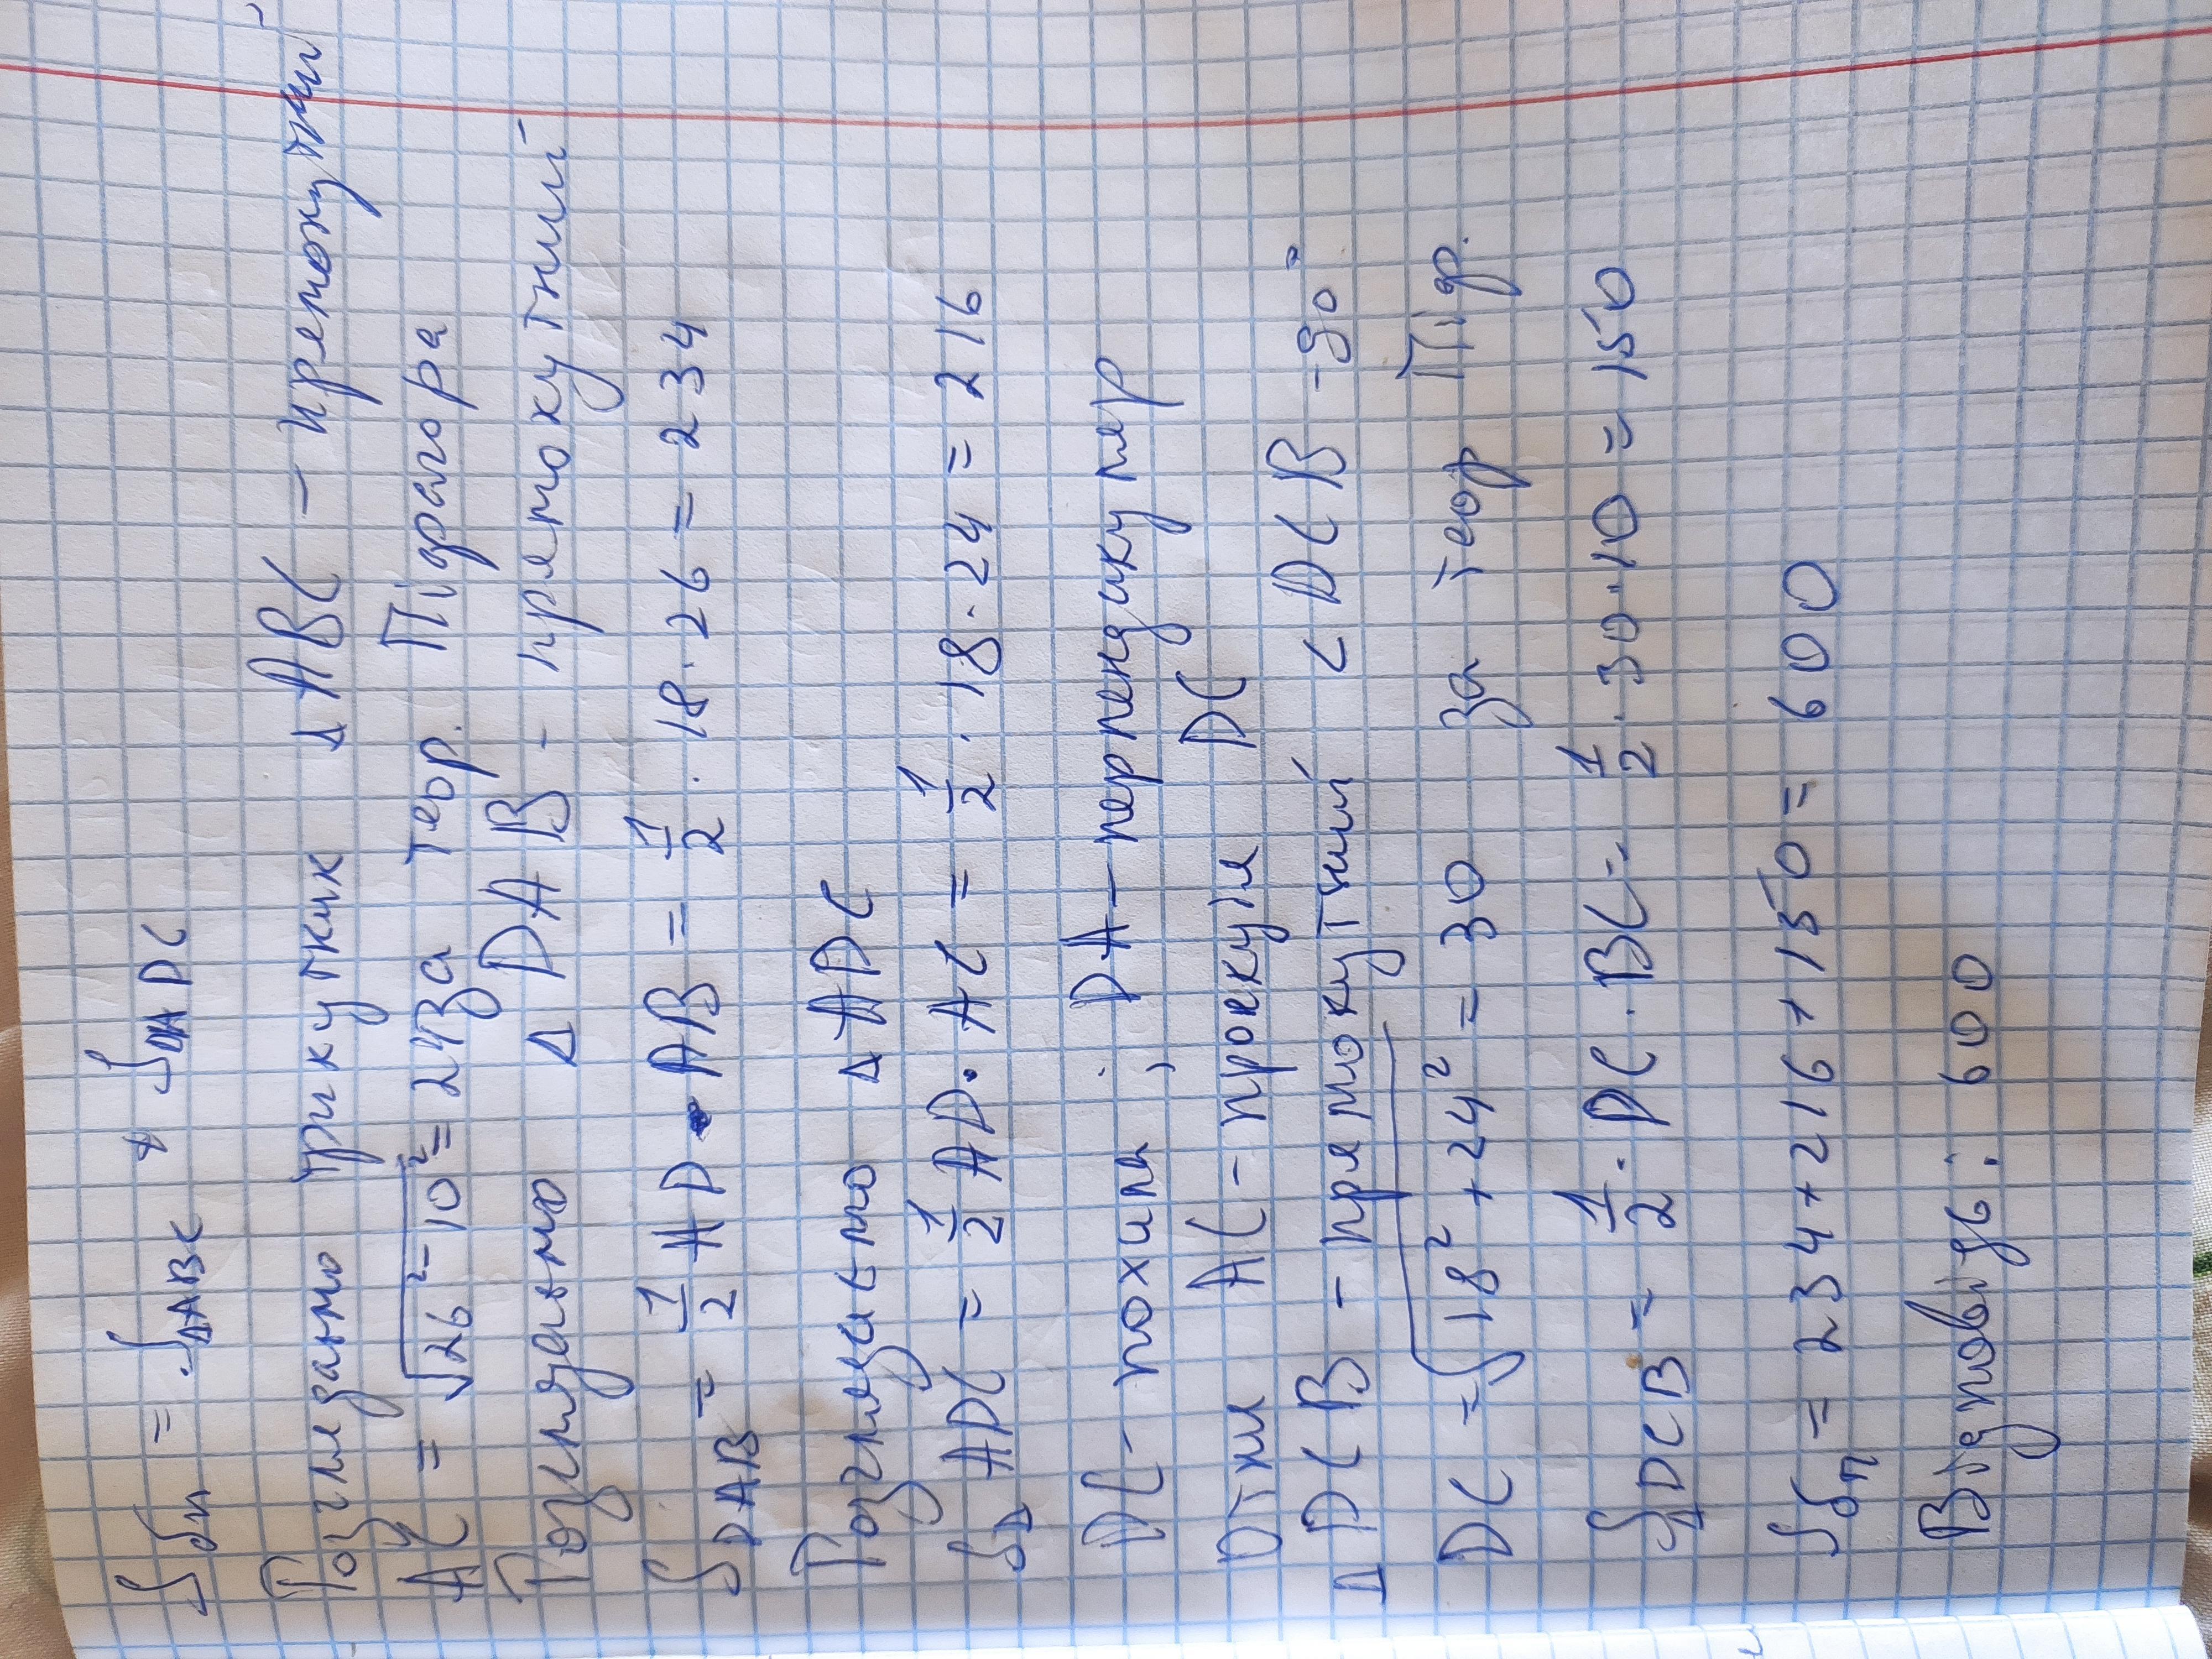 Sбп = S△ABC + S△ADC
Розглядаємо трикутник △ABC - прямокутний
AC = √26² - 10² = 24 За теор. Піфагора
Розглядаємо △ DAB - прямокутний
S DAB = 1/2 AD · AB = 1/2 · 18 · 26 = 234
Розглядаємо △ ADC
S△ ADC = 1/2 AD · AC = 1/2 · 18 · 24 = 216
DC - похила ; DA - перпендикуляр
Отже AC - проекція DC
△ DCB - прямокутний < DCB - 90°
DC = √18² + 24² = 30 за теор Піф.
S△DCB = 1/2 · DC · BC = 1/2 · 30 · 10 = 150
Sбп = 234 + 216 + 150 = 600
Відповідь: 600